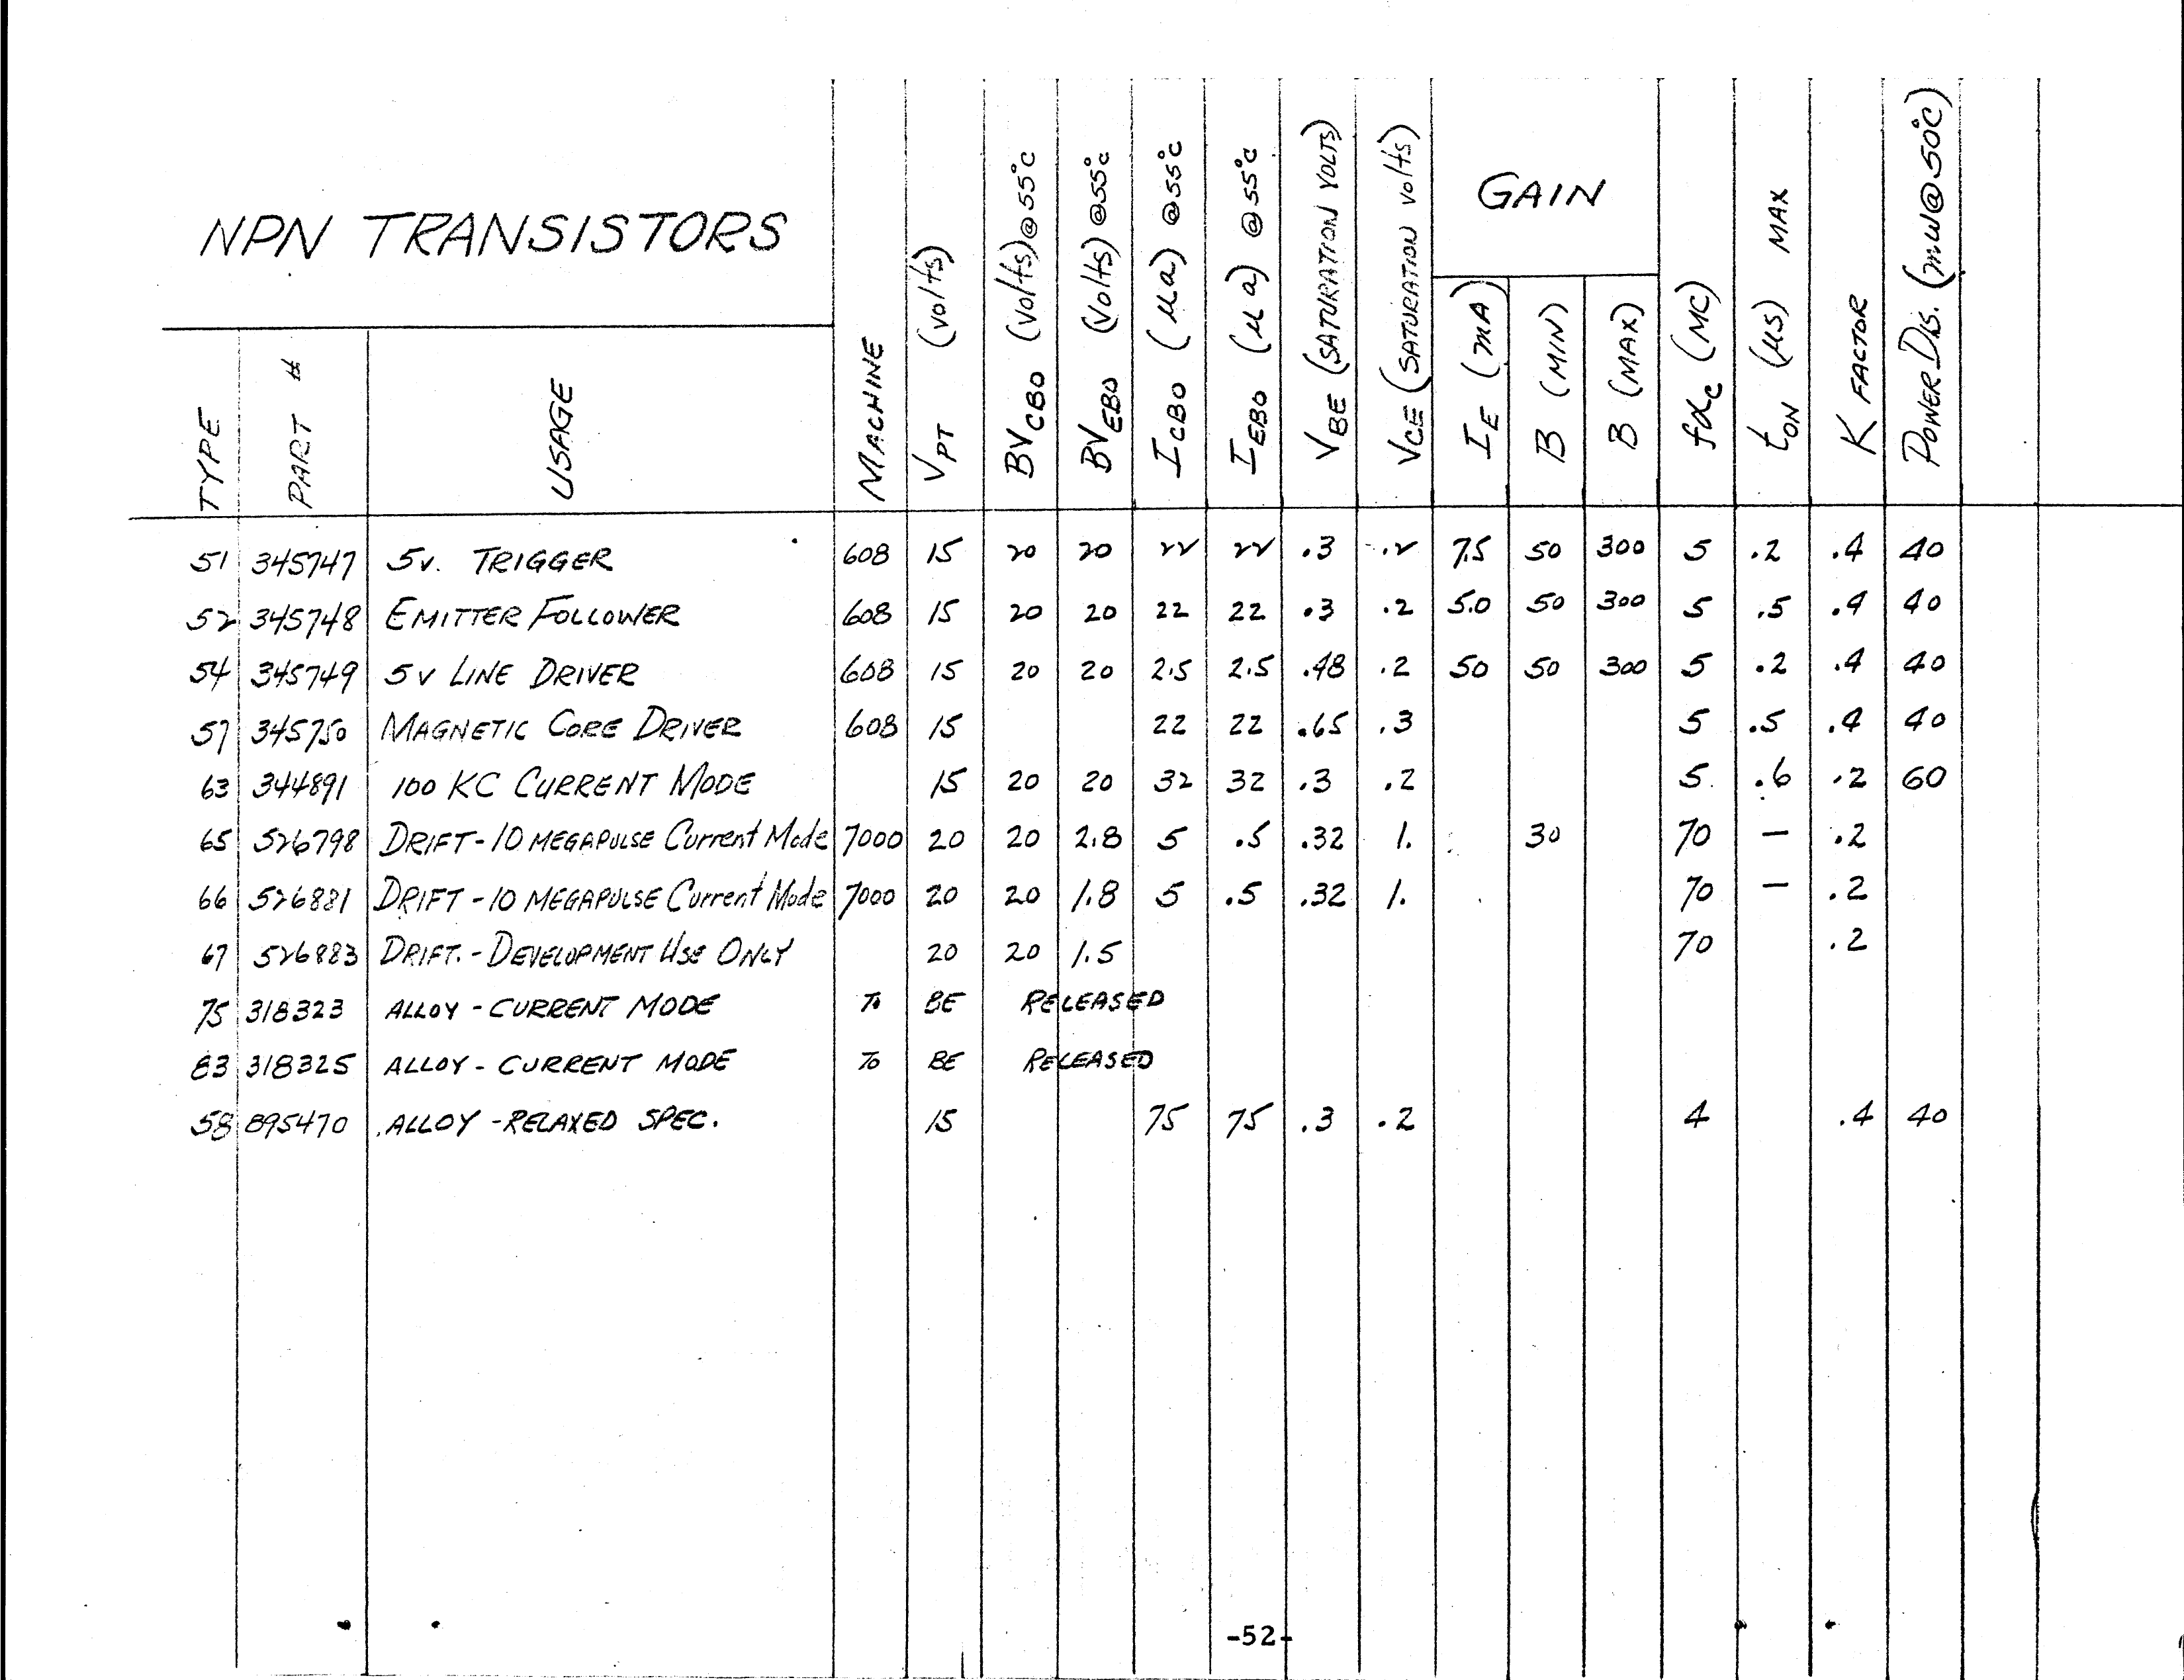 NPN TRANSISTORS
GAIN
TYPE PART # USAGE MACHINE VPT (volts) BVCBO (Volts)@55°C BVEBO (Volts)@55°C ICBO (μa) @55°C IEBO (μa) @55°C VBE (SATURATION VOLTS) VCE (SATURATION volts) IE (mA) B (MIN) B (MAX) fαc (MC) tON (μs) MAX K FACTOR POWER DIS. (mW@50°C)
51 345747 5v. TRIGGER 608 15 20 20 22 22 .3 .2 7.5 50 300 5 .2 .4 40
52 345748 EMITTER FOLLOWER 608 15 20 20 22 22 .3 .2 5.0 50 300 5 .5 .4 40
54 345749 5v LINE DRIVER 608 15 20 20 2.5 2.5 .48 .2 50 50 300 5 .2 .4 40
57 345750 MAGNETIC CORE DRIVER 608 15 22 22 .65 .3 5 .5 .4 40
63 344891 100 KC CURRENT MODE 15 20 20 32 32 .3 .2 5. .6 .2 60
65 526798 DRIFT-10 MEGAPULSE Current Mode 7000 20 20 2.8 5 .5 .32 1. 30 70 - .2
66 526881 DRIFT-10 MEGAPULSE Current Mode 7000 20 20 1.8 5 .5 .32 1. 70 - .2
67 526883 DRIFT.-DEVELOPMENT USE ONLY 20 20 1.5 70 .2
75 318323 ALLOY - CURRENT MODE TO BE RELEASED
83 318325 ALLOY - CURRENT MODE TO BE RELEASED
58 895470 ALLOY -RELAXED SPEC. 15 75 75 .3 .2 4 .4 40
-52-